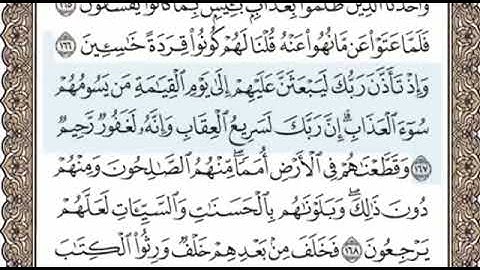 وَأَخَذْنَا الَّذِينَ ظَلَمُوا بِعَذَابٍ بَئِيسٍ بِمَا كَانُوا يَفْسُقُونَ ١٦٥
فَلَمَّا عَتَوْا عَن مَّا نُهُوا عَنْهُ قُلْنَا لَهُمْ كُونُوا قِرَدَةً خَاسِئِينَ ١٦٦
وَإِذْ تَأَذَّنَ رَبُّكَ لَيَبْعَثَنَّ عَلَيْهِمْ إِلَىٰ يَوْمِ الْقِيَامَةِ مَن يَسُومُهُمْ
سُوءَ الْعَذَابِ ۗ إِنَّ رَبَّكَ لَسَرِيعُ الْعِقَابِ وَإِنَّهُ لَغَفُورٌ رَّحِيمٌ
١٦٧ وَقَطَّعْنَاهُمْ فِي الْأَرْضِ أُمَمًا ۖ مِّنْهُمُ الصَّالِحُونَ وَمِنْهُمْ
دُونَ ذَٰلِكَ ۖ وَبَلَوْنَاهُم بِالْحَسَنَاتِ وَالسَّيِّئَاتِ لَعَلَّهُمْ
يَرْجِعُونَ ١٦٨ فَخَلَفَ مِن بَعْدِهِمْ خَلْفٌ وَرِثُوا الْكِتَابَ